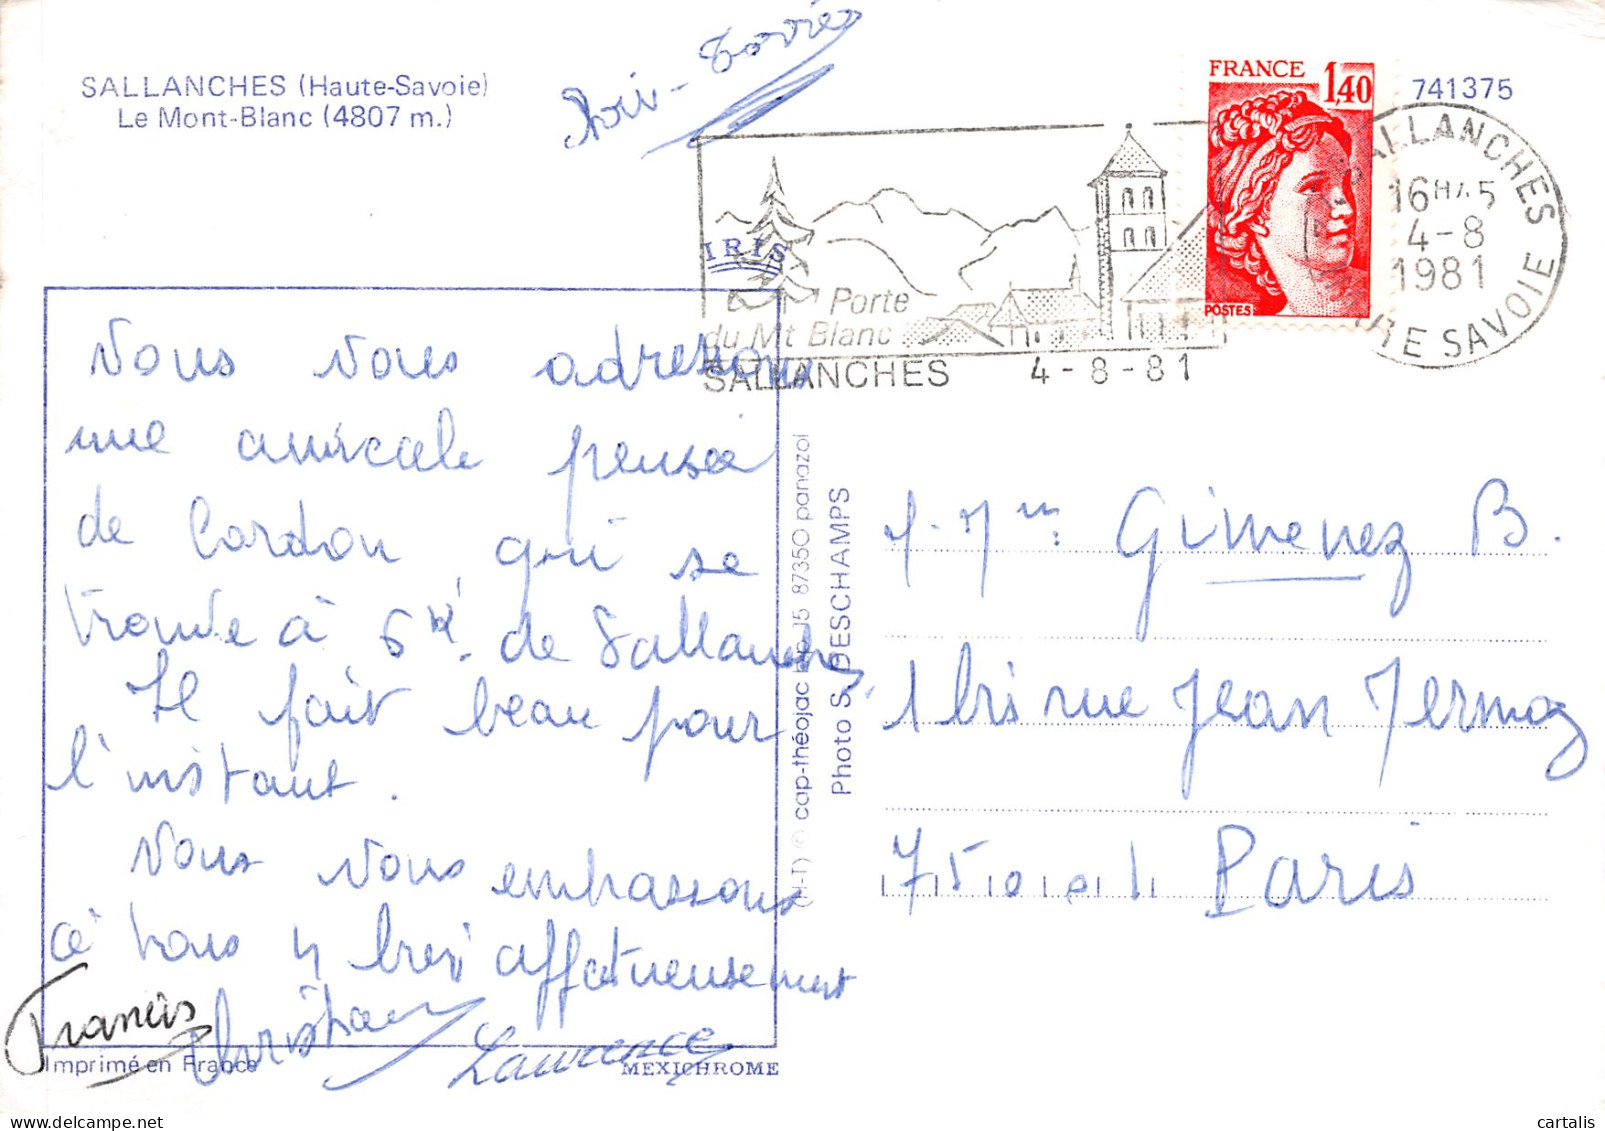 SALLANCHES (Haute-Savoie)
Le Mont-Blanc (4807 m.)
FRANCE 1,40
POSTES
741375
SALLANCHES
16H45
4-8
1981
HAUTE SAVOIE
IRIS
Porte
du Mt Blanc
SALLANCHES 4-8-81
Nous vous adressons
une amicale pensée
de Cordon, qui se
trouve à 6 de Sallanches
Il fait beau pour
l'instant.
Nous vous embrassons
tous 4 bien affectueusement
Francis Christian
Laurence
Imprimé en France
MEXICHROME
(H-T) © cap-théojac 87350 panazol
Photo S. DESCHAMPS
Gimenez B.
1 bis rue Jean Mermoz
75001 Paris
cartalis
www.delcampe.net